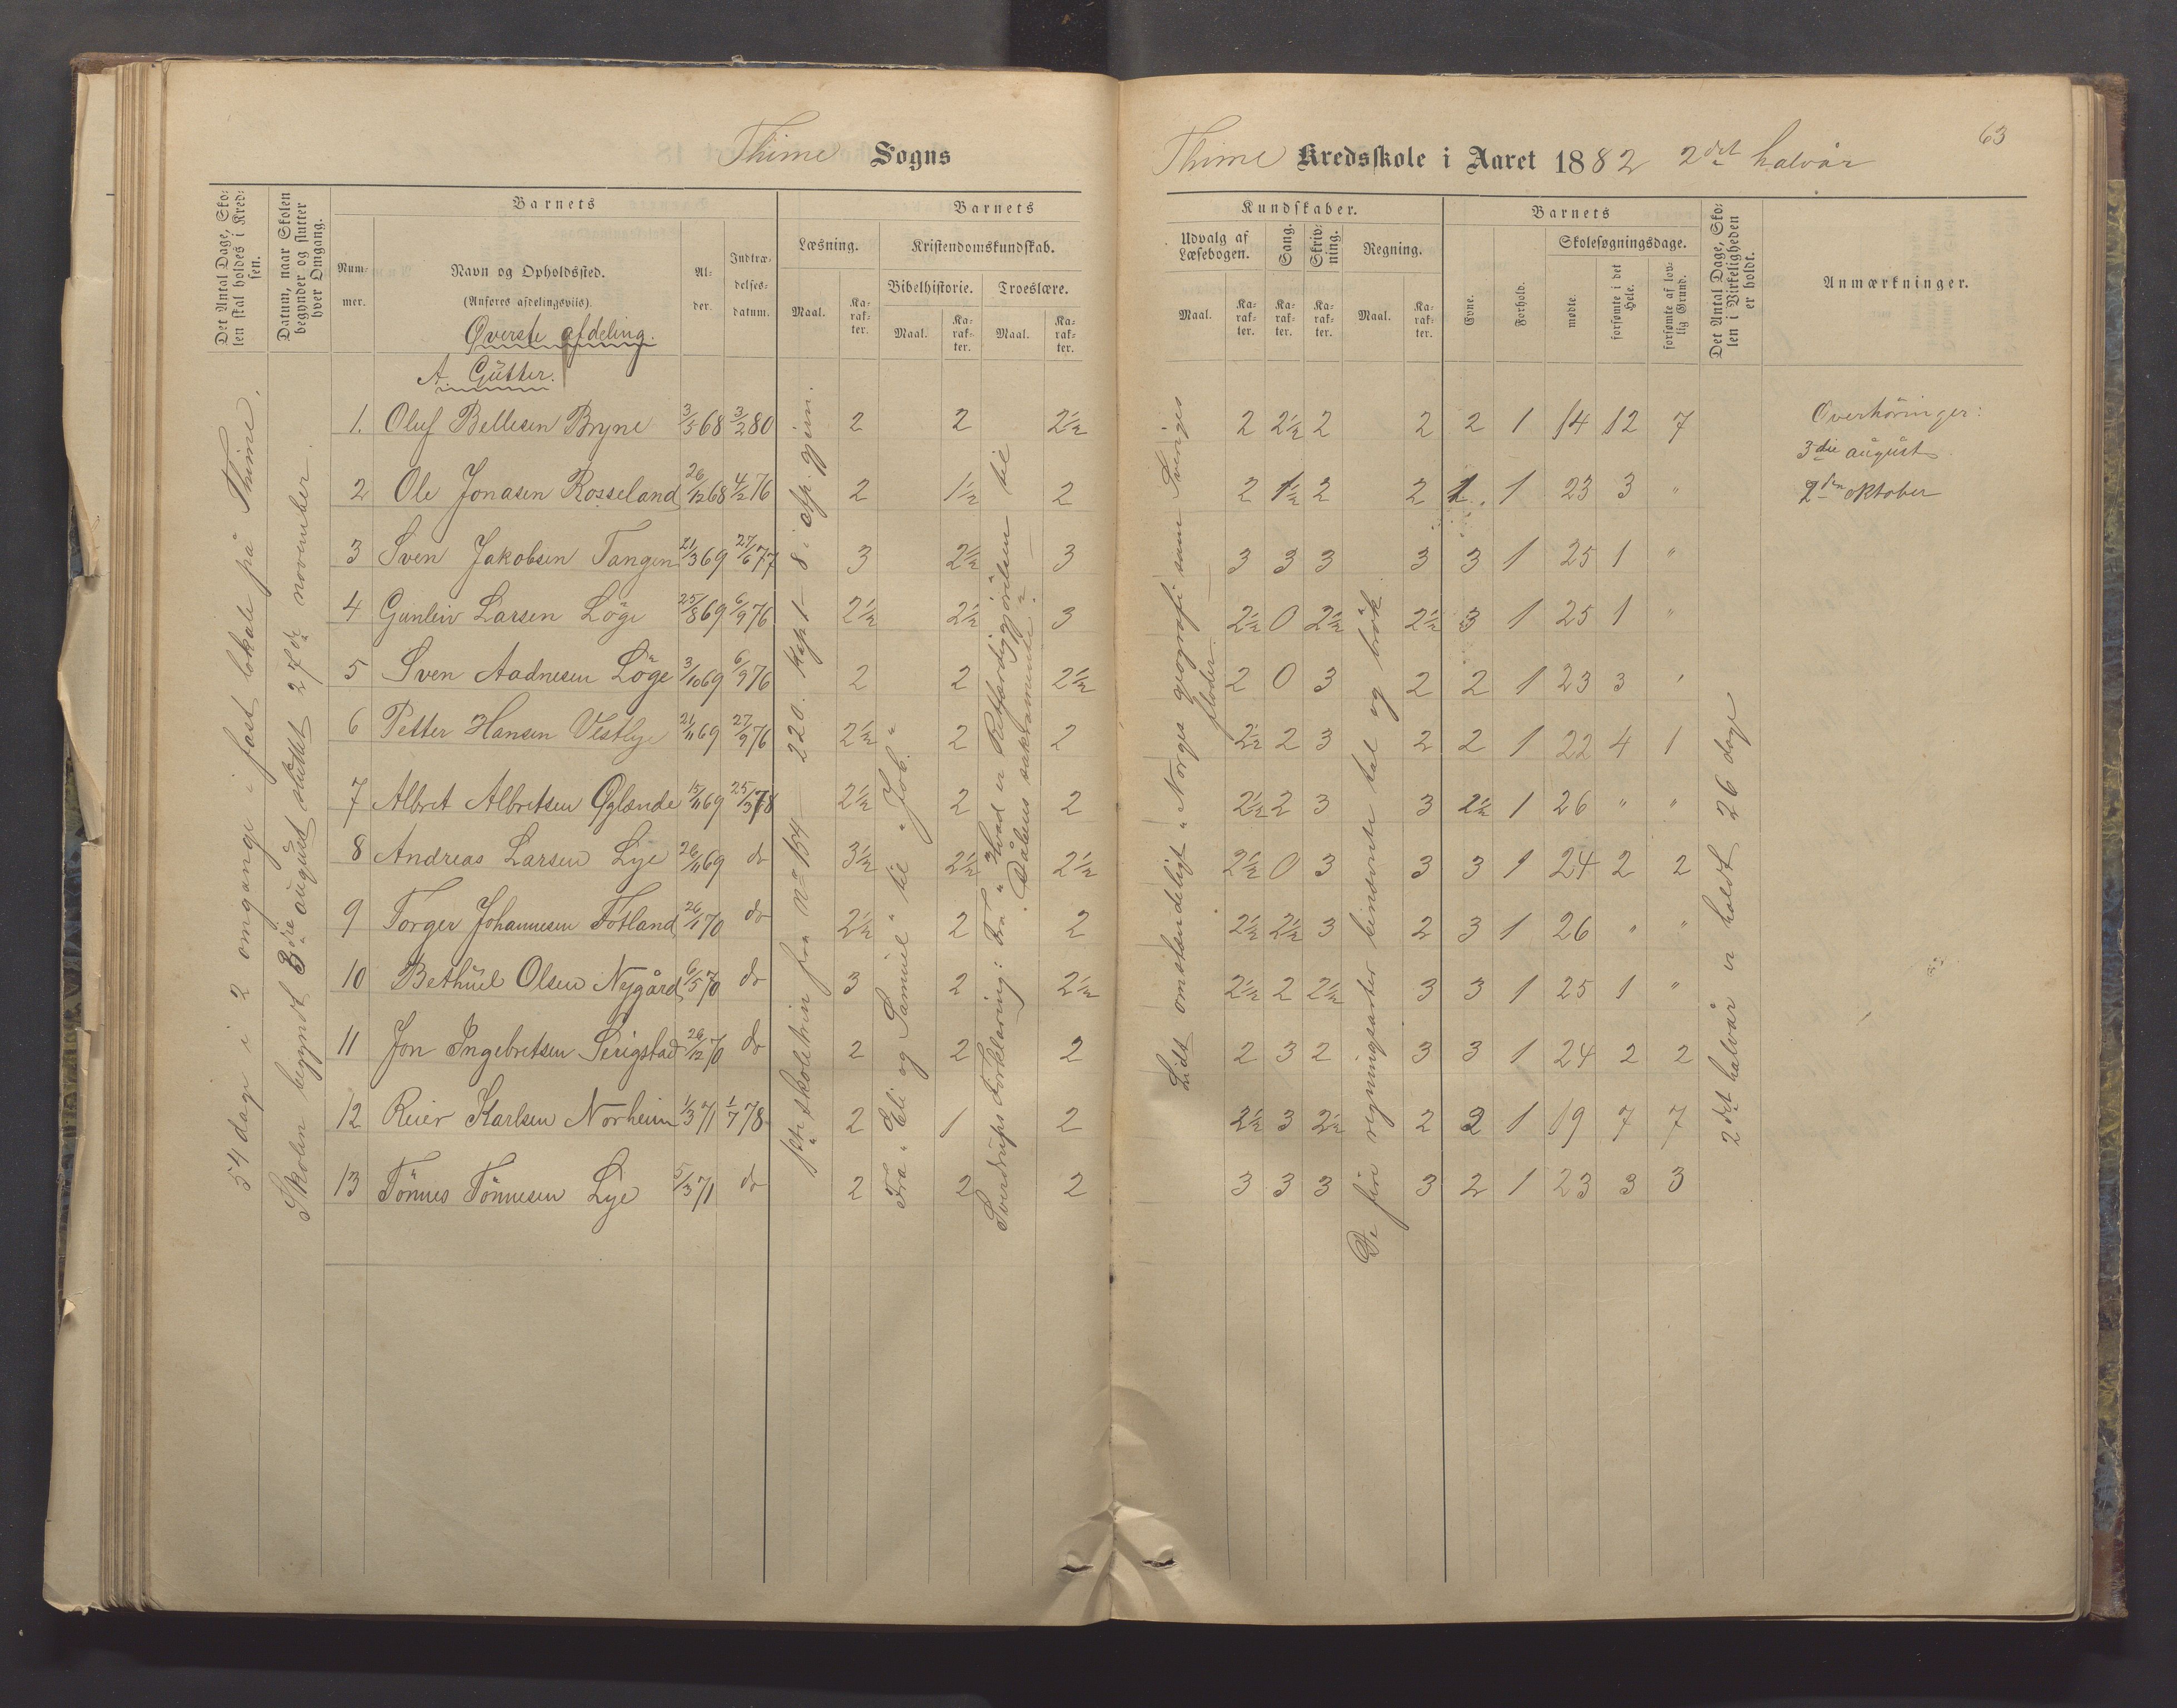 63
Thime Sogns
Thime Kredsskole i Aaret 1882 2det halvår
Det Antal Dage, Sko-
len skal holdes i Kred-
sen.
Datum, naar Skolen
begynder og slutter
hver Omgang.
Barnets
Num-
mer.
Navn og Opholdssted.
(Anføres afdelingsviis).
Al-
der.
Indtræ-
delses-
datum.
Barnets
Læsning.
Maal.
Ka-
rak-
ter.
Kristendomskundskab.
Bibelhistorie.
Maal.
Ka-
rak-
ter.
Troeslære.
Maal.
Ka-
rak-
ter.
Kundskaber.
Udvalg af
Læsebogen.
Maal.
Ka-
rak-
ter.
Sang.
Ka-
rak-
ter.
Skriv-
ning.
Ka-
rak-
ter.
Regning.
Maal.
Ka-
rak-
ter.
Barnets
Evne.
Forhold.
Skolesøgningsdage.
mødte.
forsømte i det
Hele.
forsømte af lov-
lig Grund.
Det Antal Dage, Sko-
len i Virkeligheden
er holdt.
Anmærkninger.
Øverste afdeling.
A. Gutter.
54 dage i 2 omgange i fast lokale på Thime.
Skolen begyndt 3die august sluttet 27de november.
1ste skoletrin fra No 154 – 220. Kap 1 – 8 i
Fra "Eli og Samuel" til "Job."
Sverdrups Forklaring: Fra "Hvad er Retfærdiggjörelsen" til
"Dåbens sakramente".
Lidt omstændeligt "Norges geografi" samt Sveriges
floder.
De fire regningsarter benævnte tal og brök.
2det halvår er holdt 26 dage
1. Oluf Bellesen Bryne 3/5 68 3/2 80 2 2 2½ 2 2½ 2 2 2 1 14 12 7 Overhöringer:
3die august
2 Ole Jonasen Rosseland 26/12 68 4/2 76 2 1½ 2 2 1½ 2 2 1 1 23 3 " 2den oktober
3 Sven Jakobsen Tangen 21/3 69 27/6 77 3 2½ 3 3 3 3 3 3 1 25 1 "
4 Gunleiv Larsen Löge 25/8 69 6/9 76 2½ 2½ 3 2½ 0 2½ 2½ 3 1 25 1 "
5 Sven Aadnesen Löge 3/10 69 6/9 76 2 2 2½ 2 0 3 2 2 1 23 3 '
6 Petter Hansen Vestlye 21/11 69 27/9 76 2½ 2 2 2½ 2 3 2 2 1 22 4 1
7 Albret Albretsen Øglænde 15/11 69 25/3 78 2½ 2 2 2½ 2 3 3 2½ 1 26 " "
8 Andreas Larsen Lye 26/11 69 do 3½ 2½ 2½ 2½ 0 3 3 3 1 24 2 2
9 Torger Johannesen Fotland 26/1 70 do 2½ 2 2 2½ 2½ 3 2 3 1 26 " "
10 Bethuel Olsen Nygård 6/5 70 do 3 2 2½ 2½ 2 2½ 3 3 1 25 1 "
11 Jon Ingebretsen Serigstad 26/12 70 do 2 2 2 2 3 2 3 3 1 24 2 2
12 Reier Karlsen Norheim 1/3 71 1/7 78 2 1 2 2½ 3 2½ 2 2 1 19 7 7
13 Tönnes Tönnesen Lye 5/3 71 do 2 2 2 3 3 3 3 2 1 23 3 3